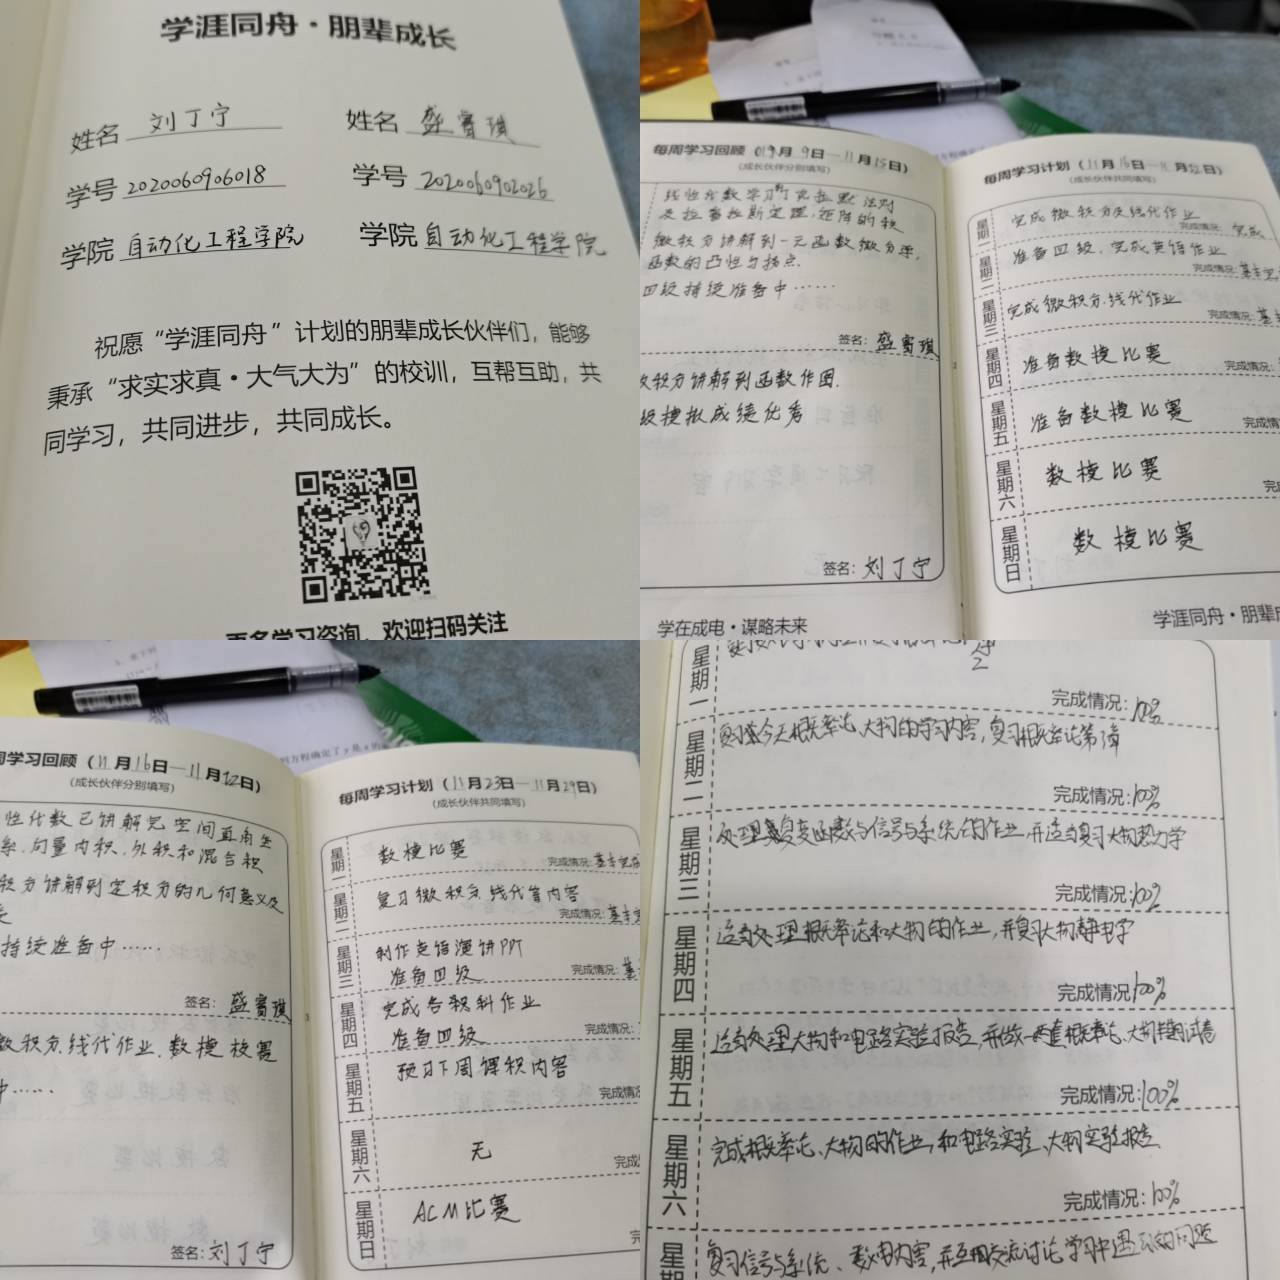 学涯同舟·朋辈成长
姓名 刘丁宁 姓名 盛睿琪
学号 2020060906018 学号 2020060902026
学院 自动化工程学院 学院 自动化工程学院
祝愿“学涯同舟”计划的朋辈成长伙伴们，能够
秉承“求实求真·大气大为”的校训，互帮互助，共
同学习，共同进步，共同成长。
更多学习咨询，欢迎扫码关注
每周学习回顾（ 月9日—11月15日）
（成长伙伴分别填写）
线性代数学习了克拉默法则
及拉普拉斯定理，矩阵的秩
微积分讲解到一元函数微分学，
函数的凸性与拐点.
四级持续准备中……
签名：盛睿琪
积分讲解到函数作图.
级模拟成绩优秀
签名：刘丁宁
学在成电·谋略未来
每周学习计划（11月16日—11月22日）
（成长伙伴共同填写）
星期一 完成微积分及线代作业
完成情况：完成
星期二 准备四级，完成英语作业
完成情况：基本完
星期三 完成微积分.线代作业
完成情况：基
星期四 准备数模比赛
完成情况：
星期五 准备数模比赛
完成情
星期六 数模比赛
完
星期日 数模比赛
学涯同舟·朋辈成
周学习回顾（11月16日—11月22日）
（成长伙伴分别填写）
性代数已讲解完空间直角坐
系，向量内积，外积和混合积
积分讲解到定积分的几何意义及
持续准备中……
签名：盛睿琪
微积分.线代作业.数模校赛
中……
签名：刘丁宁
每周学习计划（11月23日—11月29日）
（成长伙伴共同填写）
星期一 数模比赛
完成情况：基本完成
星期二 复习微积分.线代等内容
完成情况：基本完
星期三 制作英语演讲PPT
准备四级
完成情况：基
星期四 完成各科作业
准备四级
完成情况：
星期五 预习下周课程内容
完成情况
星期六 无
完成
星期日 ACM比赛
完
星期一
完成情况：100%
星期二 复习今天概率论、大物的学习内容，复习概率论第 章
完成情况：100%
星期三 处理复变函数与信号与系统的作业，并适当复习大物热力学
完成情况：100%
星期四 适当处理概率论和大物的作业，并复习大物静电学
完成情况：100%
星期五 适当处理大物和电路实验报告，并做一两套概率论、大物半期试卷
完成情况：100%
星期六 完成概率论、大物的作业，和电路实验、大物实验报告
完成情况：100%
星期 复习信号与系统、数电内容，并互相交流讨论学习中遇到的问题